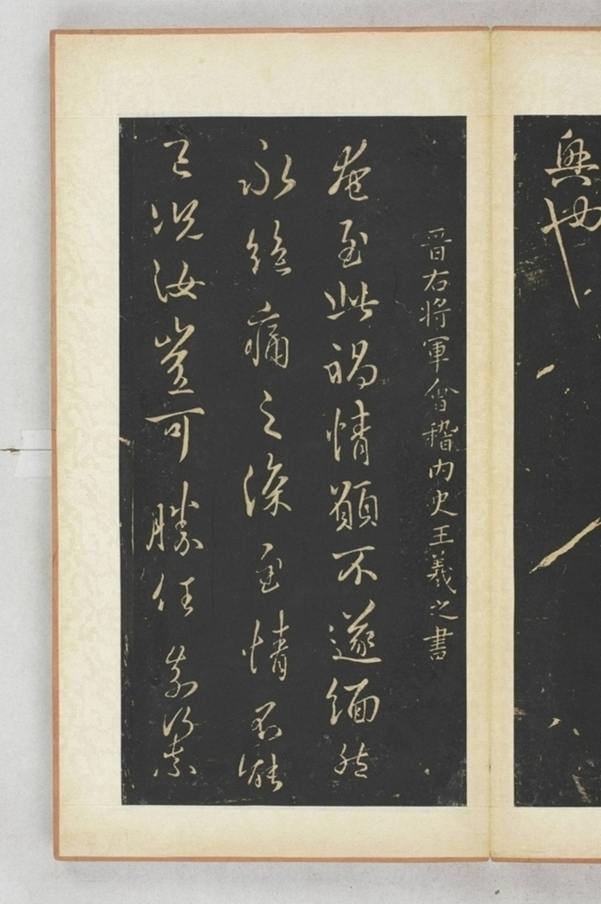 興
晉右將軍會稽內史王羲之書
奄至此禍情願不遂緬然
永絕痛之深至情不能
已況汝豈可勝任